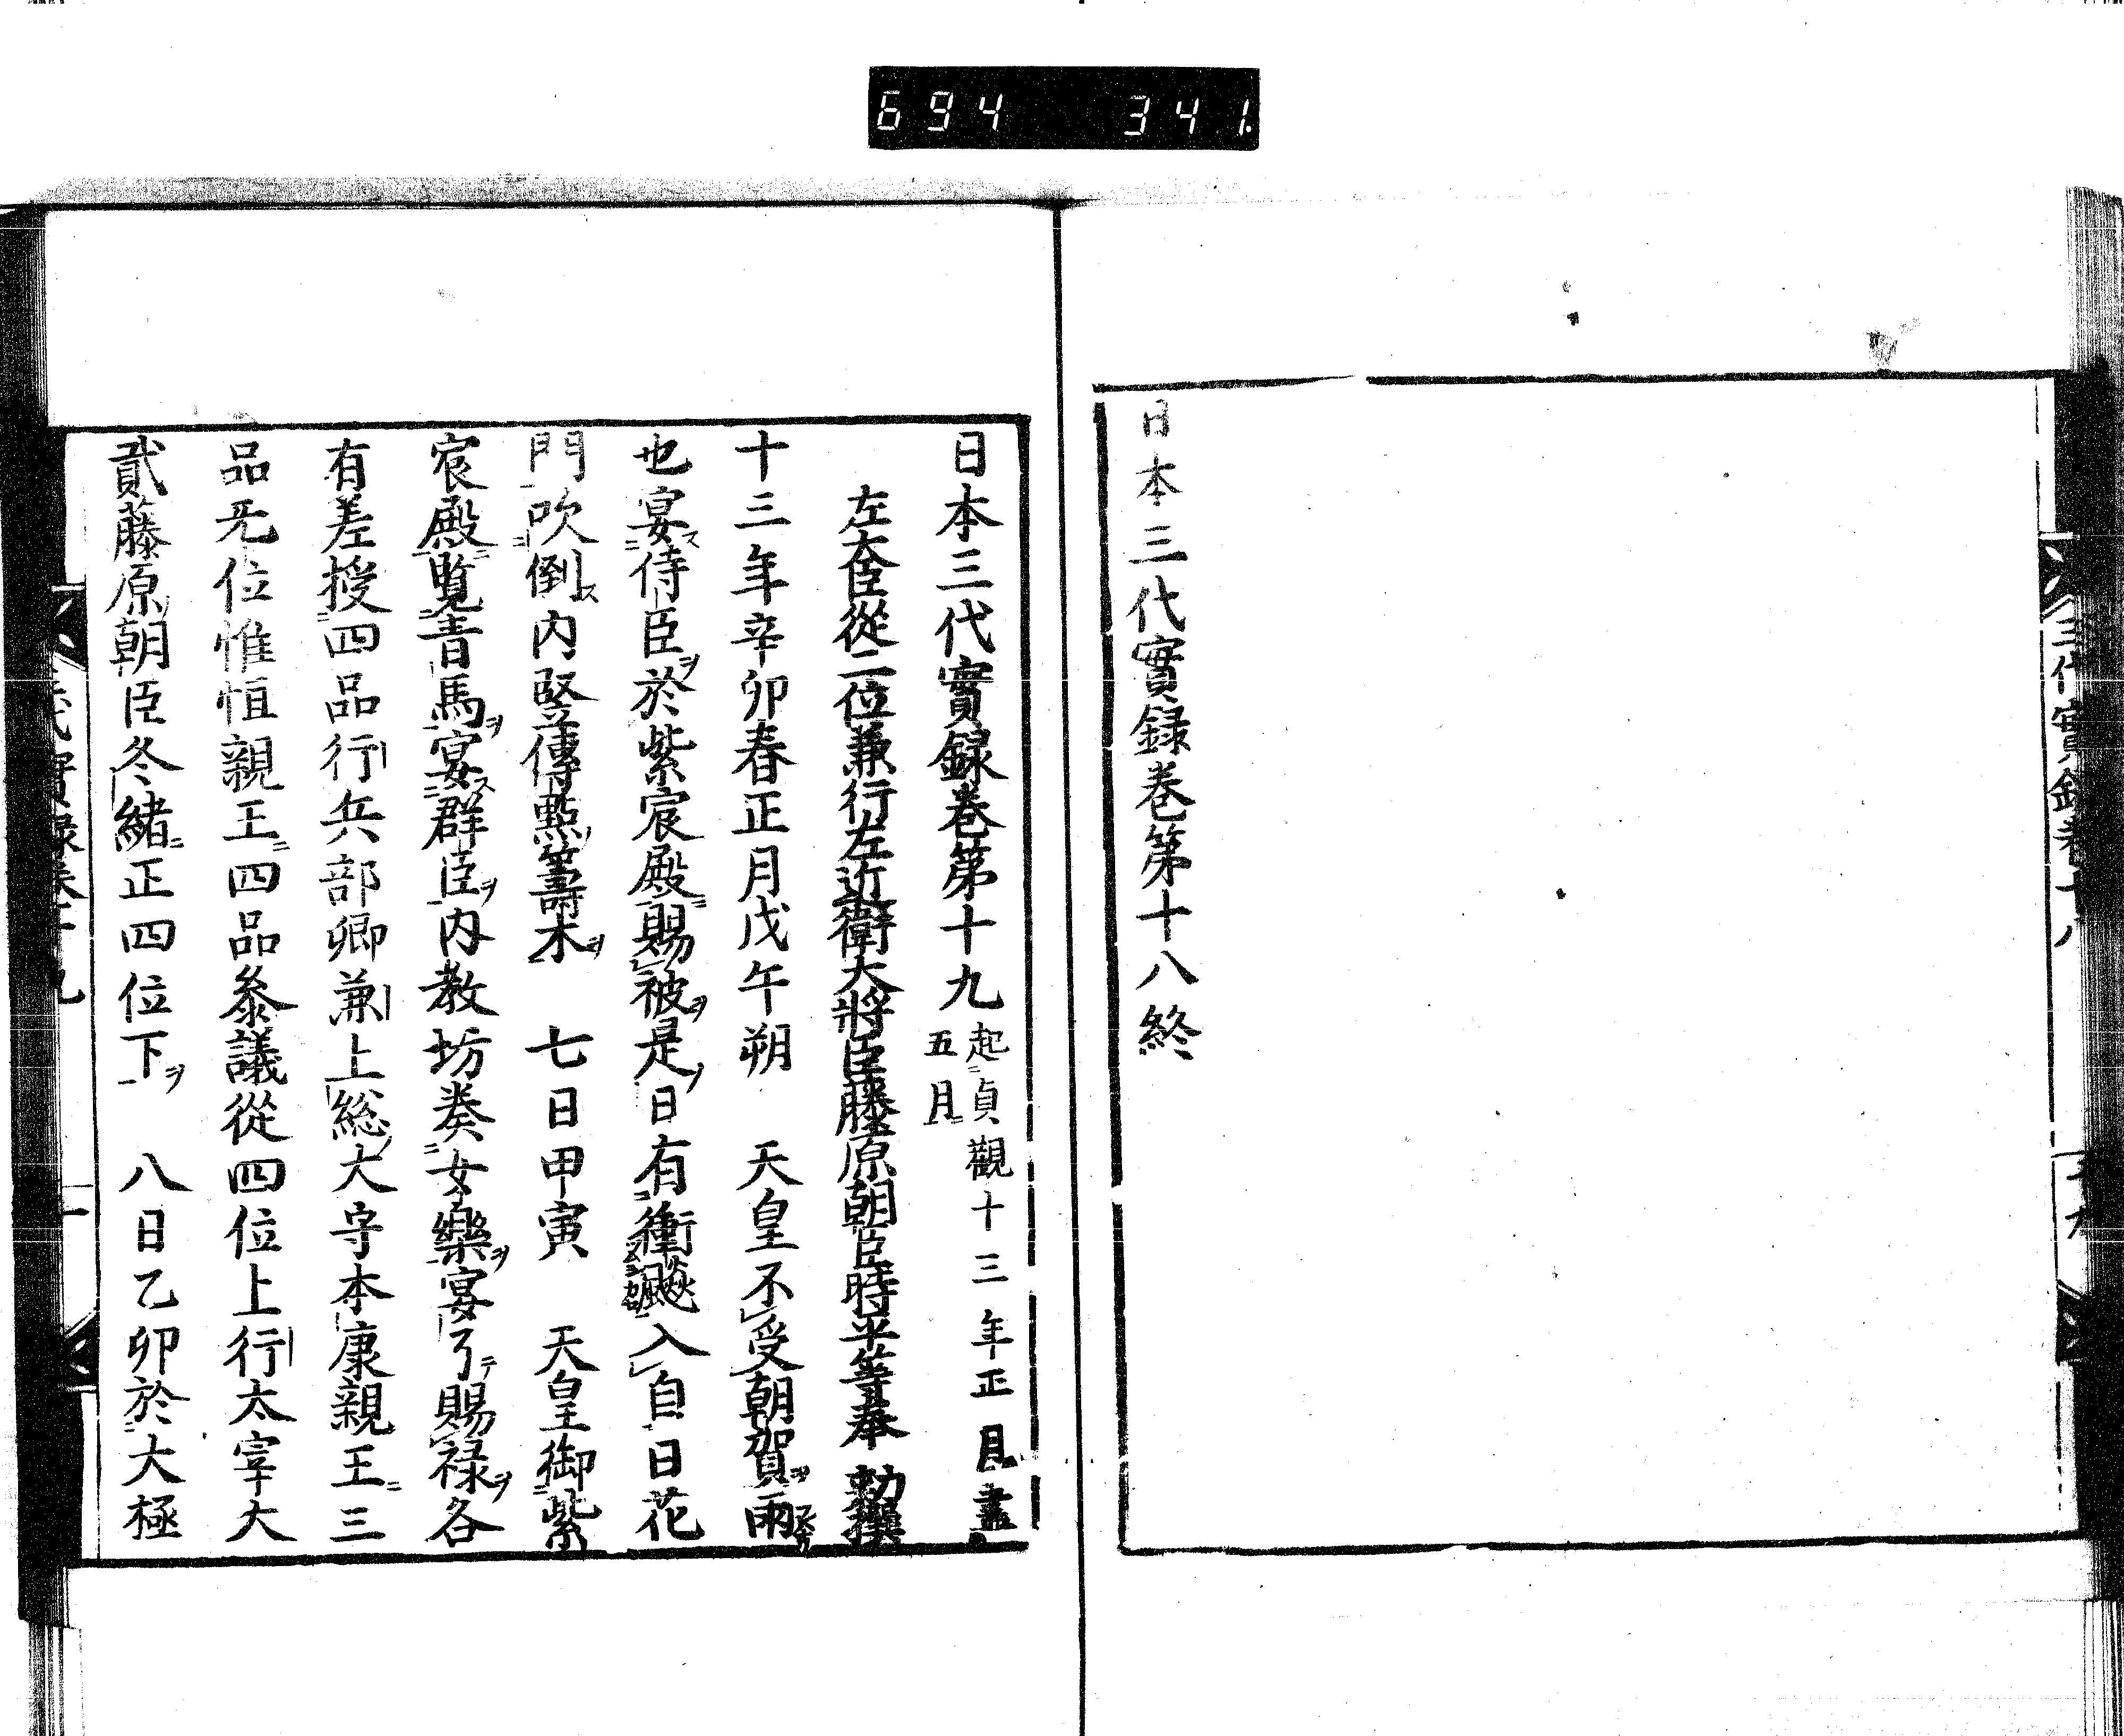 694 341.
日本三代實録巻第十八終
日本三代實録巻第十九 起貞觀十三年正月盡
五月
左大臣從二位兼行左近衛大將臣藤原朝臣時平等奉 勅撰
十三年辛卯春正月戊午朔 天皇不受朝賀雨
也宴侍臣於紫宸殿賜被是日有衝飈入自日花
門吹倒内竪傳點籌木 七日甲寅 天皇御紫
宸殿覧青馬宴群臣内教坊奏女樂宴了賜禄各
有差授四品行兵部卿兼上総大守本康親王三
品无位惟恒親王四品叅議從四位上行太宰大
貳藤原朝臣冬緒正四位下 八日乙卯於大極